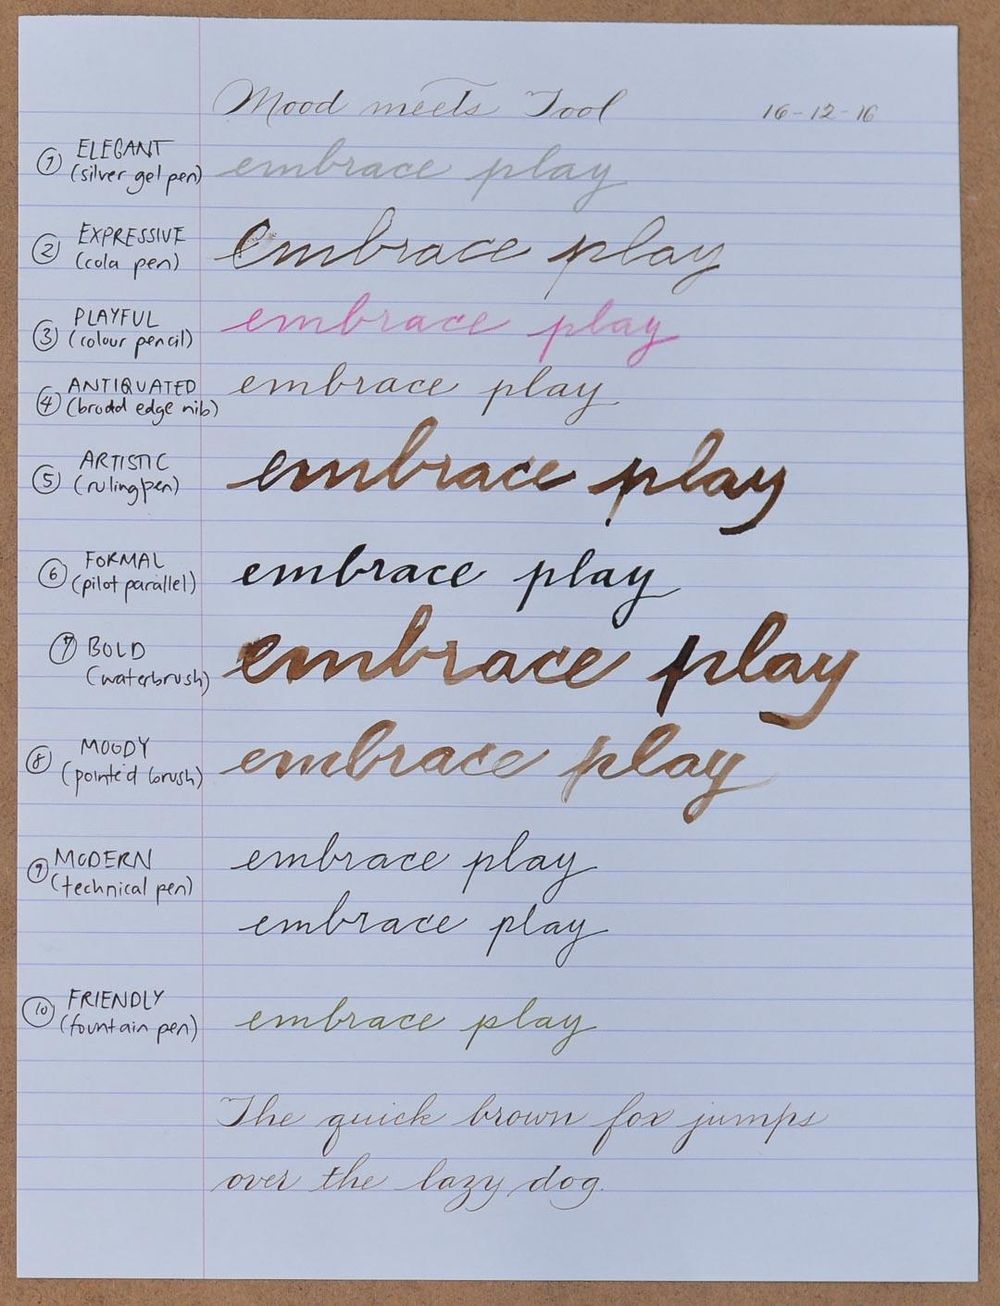 Mood meets Tool 16-12-16
1 ELEGANT embrace play
(silver gel pen)
2 EXPRESSIVE embrace play
(cola pen)
3 PLAYFUL embrace play
(colour pencil)
4 ANTIQUATED embrace play
(broad edge nib)
5 ARTISTIC embrace play
(ruling pen)
6 FORMAL embrace play
(pilot parallel)
7 BOLD embrace play
(waterbrush)
8 MOODY embrace play
(pointed brush)
9 MODERN embrace play
(technical pen)
embrace play
10 FRIENDLY embrace play
(fountain pen)
The quick brown fox jumps
over the lazy dog.